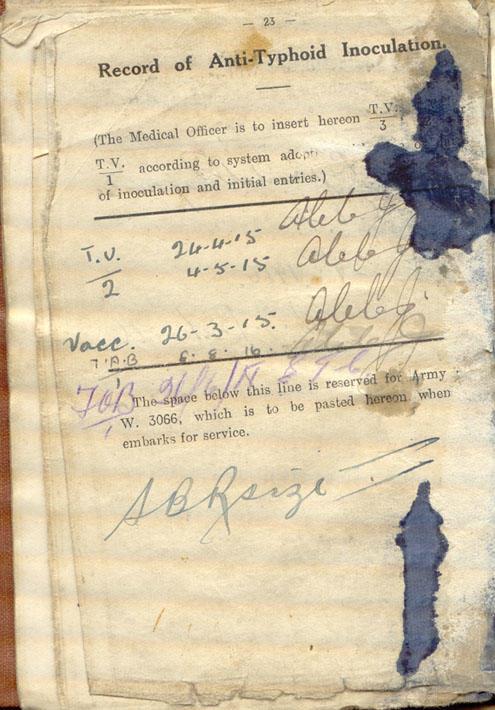 — 23 —
Record of Anti-Typhoid Inoculation.
(The Medical Officer is to insert hereon T.V./3
T.V./1 according to system adop
of inoculation and initial entries.)
T.V./2 24-4-15
4-5-15
Vacc. 26-3-15.
T.A.B 8. 16.
The space below this line is reserved for Army
W. 3066, which is to be pasted hereon when
embarks for service.
size